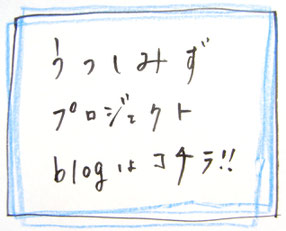 うつしみず
プロジェクト
blogはコチラ!!